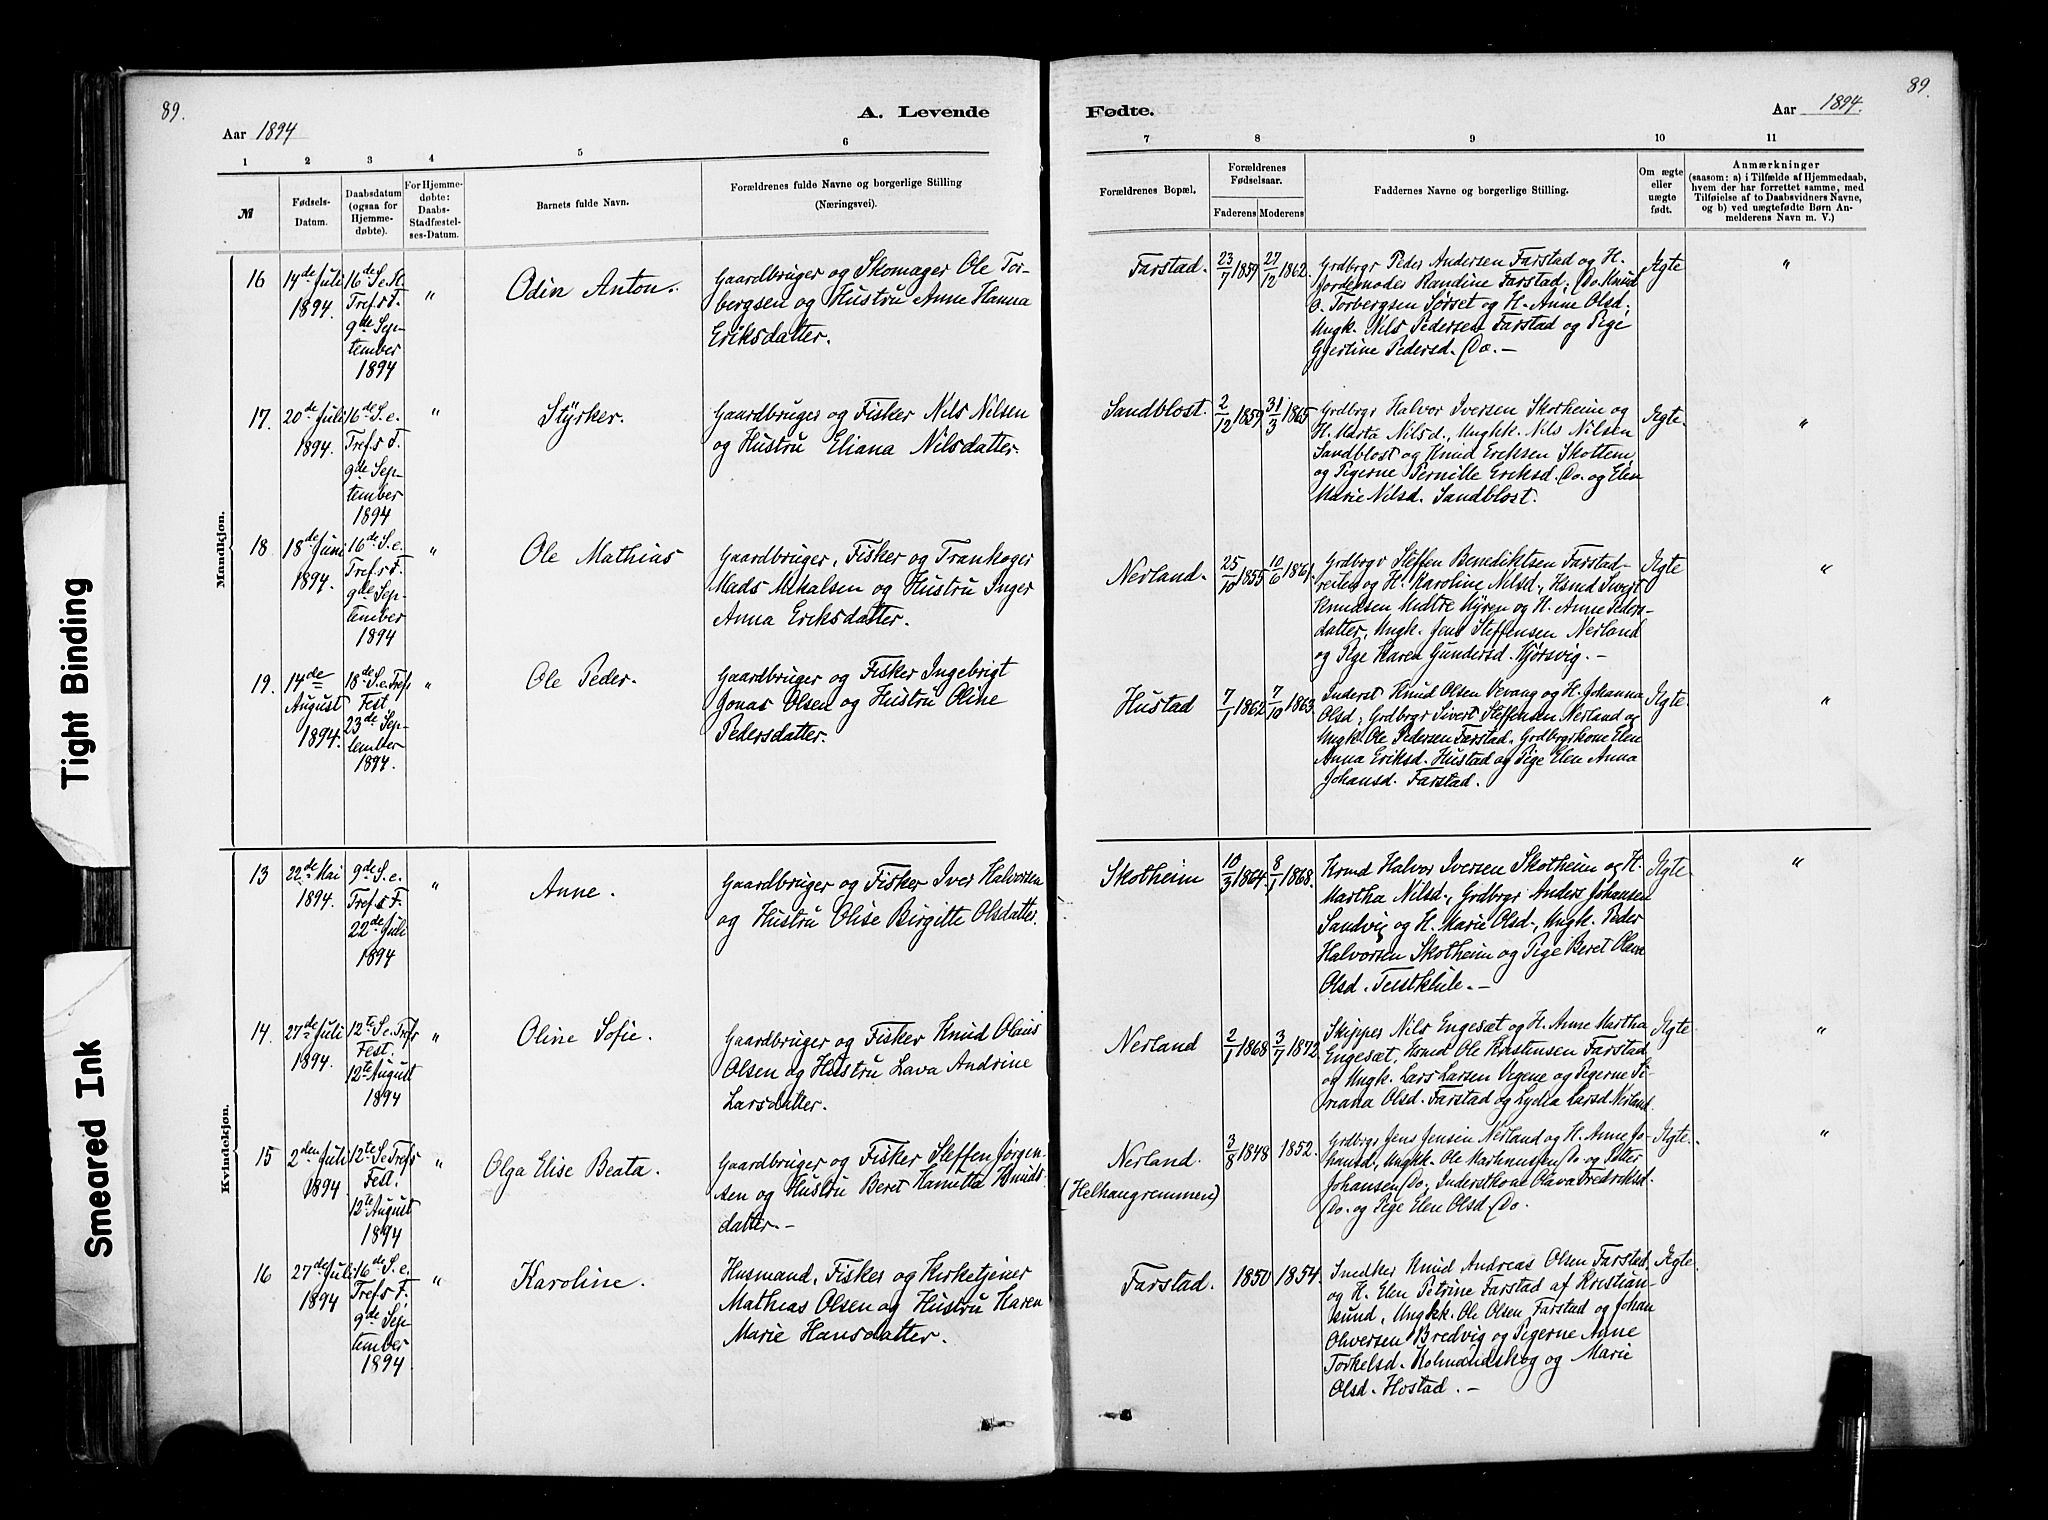 89.
A. Levende
Aar 1894
1 2 3 4 5 6
№
Fødsels-
Datum.
Daabsdatum
(ogsaa for
Hjemme-
døbte).
For Hjemme-
døbte:
Daabs-
Stadfæstel-
ses-Datum.
Barnets fulde Navn.
Forældrenes fulde Navne og borgerlige Stilling
(Næringsvei).
Mandkjøn.
16
14de Juli
1894.
16de S. e.
Tref.s F.
9de Sep-
tember
1894
"
Odin Anton.
Gaardbruger og Skomager Ole Tor-
bergsen og Hustru Anne Hanna
Eriksdatter.
17.
20de Juli
1894.
16de S. e.
Tref.s F.
9de Sep-
tember
1894
"
Styrker.
Gaardbruger og Fisker Nils Nilsen
og Hustru Eliana Nilsdatter.
18.
18de Juni
1894.
16de S. e.
Tref.s F.
9de Sep-
tember
1894
"
Ole Mathias
Gaardbruger, Fisker og Trankoger
Mads Mikalsen og Hustru Inger
Anna Eriksdatter.
19.
14de
August
1894.
18de S. e. Tref.
Fest
23de Sep-
tember
1894.
"
Ole Peder.
Gaardbruger og Fisker Ingebrigt
Jonas Olsen og Hustru Oline
Pedersdatter.
Kvindekjøn.
13
22de Mai
1894.
9de S. e.
Tref.s F.
22de Juli
1894
"
Anne.
Gaardbruger og Fisker Iver Halvorsen
og Hustru Olise Birgitte Olsdatter.
14.
27de Juli
1894.
12te S. e. Tref.s
Fest.
12te August
1894
"
Oline Sofie.
Gaardbruger og Fisker Knud Olaus
Olsen og Hustru Lava Andrine
Larsdatter.
15
2den Juli
1894
12te S. e. Tref.s
Fest.
12te August
1894
"
Olga Elise Beata.
Gaardbruger og Fisker Steffen Jørgen-
sen og Hustru Beret Hanetta Knuds-
datter.-
16
27de Juli
1894
16de S. e.
Tref.s F.
9de Sep-
tember
1894
"
Karoline.
Husmand, Fisker og Kirketjener
Mathias Olsen og Hustru Karen
Marie Hansdatter.
89.
Fødte.
Aar 1894.
7 8 9 10 11
Forældrenes Bopæl.
Forældrenes
Fødselsaar.
Faderens Moderens
Faddernes Navne og borgerlige Stilling.
Om ægte
eller
uægte
født.
Anmærkninger
(saasom: a) i Tilfælde af Hjemmedaab,
hvem der har forrettet samme, med
Tilføielse af to Daabsvidners Navne,
og b) ved uægtefødte Børn An-
melderens Navn m. V.)
Farstad.
23/7 1857
27/12 1862.
Grdbrgr Peder Andersen Farstad og H.
Jordemoder Randine Farstad; Do. Knud
O. Torbergsen Sørset og H. Anne Olsd.;
Ungk. Nils Pedersen Farstad og Pige
Gjertine Pedersd. Do. -
Ægte
"
Sandblost.
2/12 1859
31/3 1865
Grdbrgr Halvor Iversen Skotheim og
H. Marta Nilsd., Ungkk. Nils Nilsen
Sandblost og Knud Eriksen Skottem
og Pigerne Pernille Eriksd. Do. og Elen
Marie Nilsd. Sandblost.
Ægte.
"
Nerland.
25/10 1855
10/6 1861.
Grdbrgr Steffen Benediktsen Farstad-
reiten og H. Karoline Nilsd., Hsmd Sivert
Knudsen Midtre Myren og H. Anne Peders-
datter, Ungk. Jens Steffensen Nerland
og Pige Karen Gundersd. Hjørsvig. -
Ægte
"
Hustad
7/1 1862
7/10 1863
Inderst Knud Olsen Vevang og H. Johanna
Olsd., Grdbrgr Sivert Steffensen Nerland og
Ungk. Ole Pedersen Farstad, Grdbrgrkone Elen
Anna Eriksd. Hustad og Pige Elen Anna
Johansd. Farstad.
Ægte.
"
Skotheim
10/3 1864.
8/1 1868.
Kmd Halvor Iversen Skotheim og H.
Martha Nilsd., Grdbrgr Anders Johansen
Sandvig og H. Marie Olsd., Ungk. Peder
Halvorsen Skotheim og Pige Beret Olava
Olsd. Teistklule. -
Ægte.
"
Nerland
2/1 1868
3/7 1872.
Skipper Nils Engesæt og H. Anne Martha
Engesæt, Kmd Ole Kristensen Farstad
og Ungk. Lars Larsen Vegene og Pigerne Si-
riana Olsd. Farstad og Lydia Larsd. Nerland.
Ægte
"
Nerland.
(Helhaugremmen)
3/8 1848
1852.
Grdbrgr Jens Jensen Nerland og H. Anne Jo-
hansd., Ungkk. Ole Markusen Do. og Petter
Johansen Do., Inderstkone Olava Fredriksd.
Do. og Pige Elen Olsd. Do.
Ægte.
"
Farstad.
1850
1854.
Snedker Knud Andreas Olsen Farstad
og H. Elen Petrine Farstad af Kristian-
sund, Ungkk. Ole Olsen Farstad og Johan
Oliversen Bredvig og Pigerne Anne
Torkelsd. Kolmandskog og Marie
Olsd. Hostad. -
Ægte.
Tight Binding
Smeared Ink